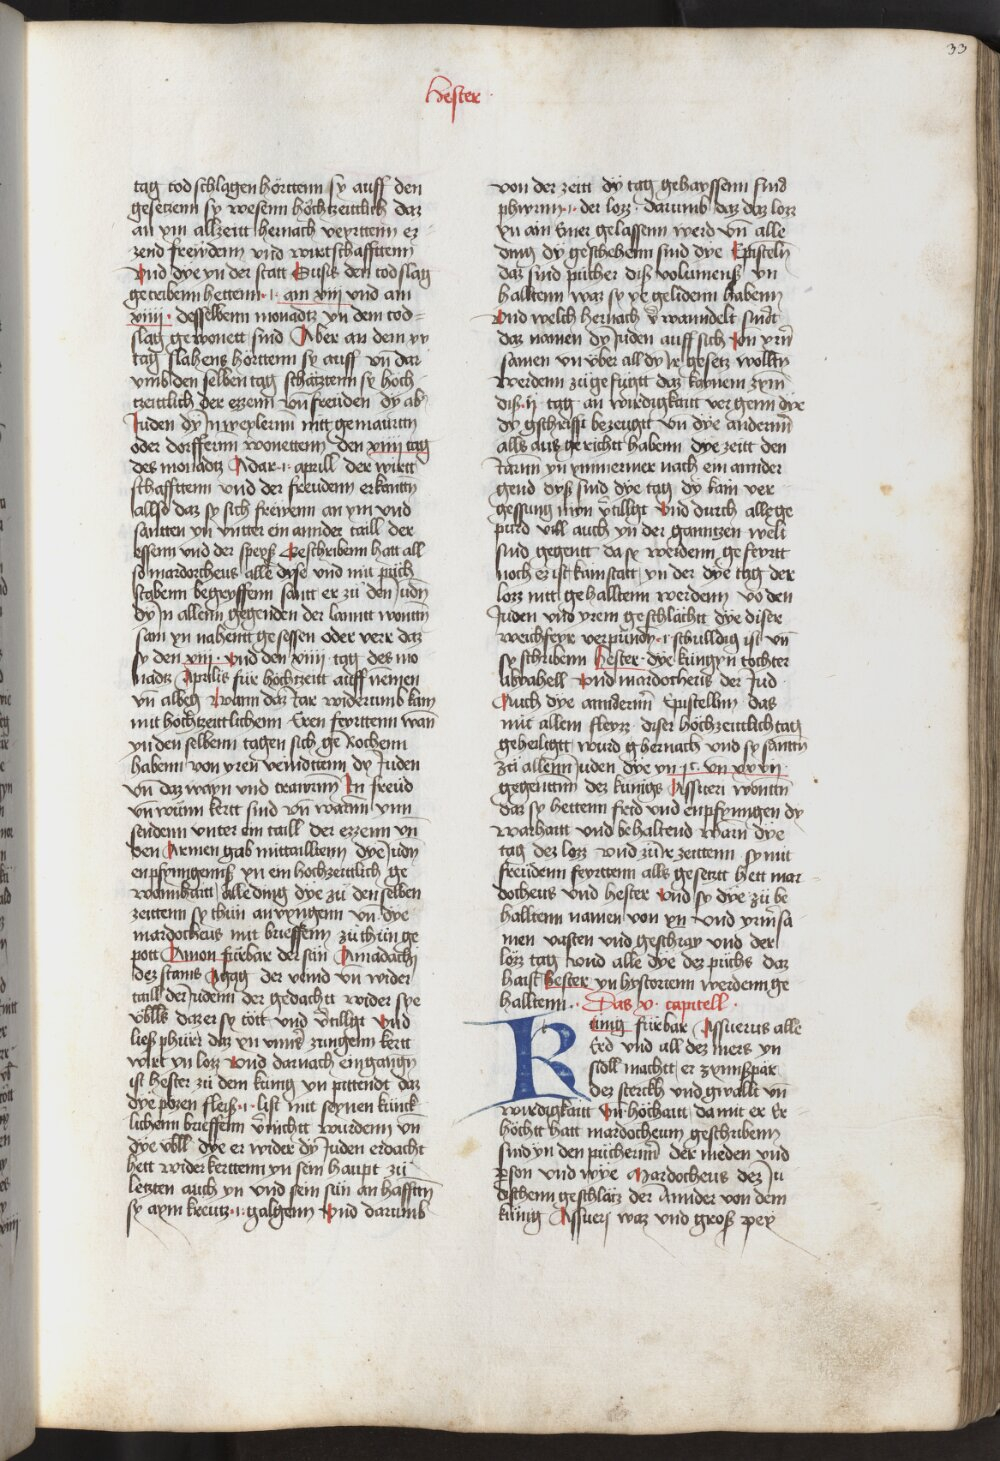 33
Hester
tag tod schlagen hörttenn sy auff den
gesetzenn sy wesenn höchtzeittlich daz
an ym allzeitt hernach veyrttenn er-
zend frewdenn vnd wirtschafftenn
Vnd dye yn der statt Susis den todslag
getribenn hettenn ·i· am xiij vnd am
xiiij · desselbenn monadtz yn dem tod-
slag gewonett sind Aber an dem xv
tag slahens hörttenn sy auff vn̄ dar
vmb den selben tag schätztenn sy höch-
tzeittlich der ezzenn vn̄ freüden dy ab
Juden dy yn weylernn nitt gemaurtn̄
oder dorffernn wonettenn den xiiij tag
des monadtz Adar ·i· aprill der wirtt
schafftenn vnd der freudenn erkantn̄
allso daz sy sich frewenn an ym vnd
santten yn vntter ein annder taill der
essenn vnd der speyß Geschribenn hatt all
so mardocheus alle dyse vnd mit püch
stabenn begryffenn santt er zü den Judn̄
dy yn allenn gegenden der lanntt wontn̄
sam yn nahentt gesessen oder verr daz
sy den xiij · vnd den xiiij · tag des mo
nadtz Aprilis für höchtzeitt auff nemen
vn̄ allbeg Wann daz Jar widerumb kam
mit höchtzeittlichenn Eren feyrttenn wan̄
yn den selbenn tagen sich ge Rochenn
habenn von yren veindttenn dy Juden
vn̄ daz wayn vnd trawrnn̄ Jn freüd
vn̄ wünn kertt sind vn̄ warnn ynn
sendenn vnter ein taill der ezzenn vn̄
den Armen gab mittailltenn dye Judn̄
enpfynngenniß yn ein hochtzeittlich ge
wonnhaitt alle ding dye zü den selben
zeittenn sy thün anvyngenn vn̄ dye
mardocheus mit brieffenn zü thün ge
pott Amon fürbar der sün Amadachj
dez stams Agag der veind vn̄ wider
taill der Judenn der gedachtt wider sye
vblls daz er sy tött vnd v̄tilligt vnd
ließ phürr daz yn vnns̄ zungenn kertt
wirt yn lozz Vnd darnach eingangn̄
ist hester zü dem künig yn pittendt daz
dye pözen fleiß ·i· list mit seynen künck-
lichenn brieffenn v̄nichtt wurdenn vn̄
dye vbll dye er wider dy Juden erdacht
hett widerkerttenn yn sein haupt zü
letzten auch yn vnd sein sün an hafftn̄
sy aym kreutz ·i· galgenn Vnd darumb
von der zeitt dy tag gehayssenn sind
phurim ·i· der lozz · darumb daz daz lozz
yn ain Emer gelassenn werd vn̄ alle
ding dy geschehenn sind dye Epistelln̄
daz sind pücher diß volumenß yn
halltenn waz sy ye gelidenn habenn
Vnd welch hernach v̄wanndelt sindt
daz namen dy Juden auff sich von yrn̄
samen vn̄ vber all dy yr gesetz wolltn̄
werdenn zügefügtt daz kaynem zym̄
diß ·ij· tag an wirdigkaitt vergenn dye
dy gschrifft bezeugtt vn̄ dye anderrnn̄
alls aus gerichtt habenn dye zeitt den
Jarnn yn ymmermer nach ein annder
gend dyß sind dye tag dy kain ver-
gessung nym̄ v̄tilligt Vnd durch alle ge
purd vill auch yn der ganntzen welt
sind gegentt da sy werdenn gefeyrtt
noch er ist kain statt yn der dye tag der
lozz nitt gehalltenn werdenn vō den
Juden vnd yrem geschlächtt dye diser
weichfeyr verpündtt ·i· schulldig ist vn̄
sy schribenn hester · dye küngyn tochter
abyahell vnd mardocheus der Jud ·
Auch dye annderrnn̄ Epistellnn̄ das
mit allem fleyzz · diser höchzeittlich tag
geheiligtt wurd hernach vnd sy santtn̄
zü allenn Juden dye yn ·jc· vn̄ xxvij ·
gegenttnn dez künigs Assueri wontn̄
daz sy hettenn frid vnd enpfynngen dy
warhaitt vnd behaltend warn̄ dye
tag dez lozz vnd zü yr zeittenn · sy mit
freüdenn feyrttenn alls gesetzt hett mar
docheus vnd hester Vnd sy dye zü be
halltenn namen von yn vnd yrm̄ sa
men vasten vnd geschray vnd der
lözz tag vnd alle dye dez püchs daz
haist hester yn hystorienn werdenn ge
halltenn · Das x · capitell ·
Künig fürbar Assuerus alle
Erd vnd all dez mers yn
süll machtt er zynnßpär
dez sterckh vnd gwallt vn̄
wirdigkaitt Vn̄ höchaitt da mit er Er
höchtt hatt mardocheum geschribenn
sind yn den püchernn̄ der meden vnd
p̱erson vnd wye Mardocheus dez Ju
dischenn geschlätz der Annder von dem
künig Assueri waz vnd groß pey